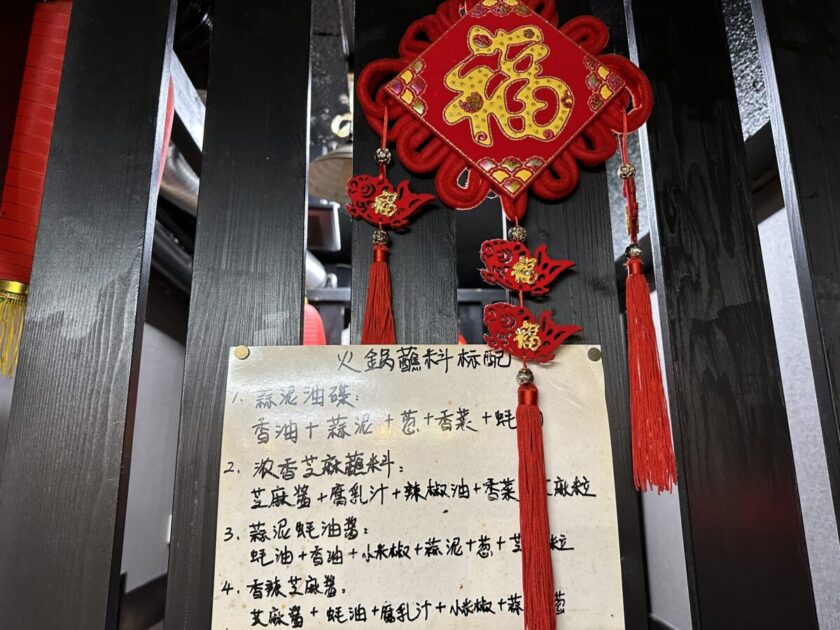 福
福
福
福
火鍋蘸料标配
1. 蒜泥油碟:
香油+蒜泥+葱+香菜+蚝
2. 浓香芝麻蘸料:
芝麻醬+腐乳汁+辣椒油+香菜 芝麻粒
3. 蒜泥蚝油醬:
蚝油+香油+小米椒+蒜泥+葱+芝 粒
4. 香辣芝麻醬:
芝麻醬+蚝油+腐乳汁+小米椒+蒜 葱